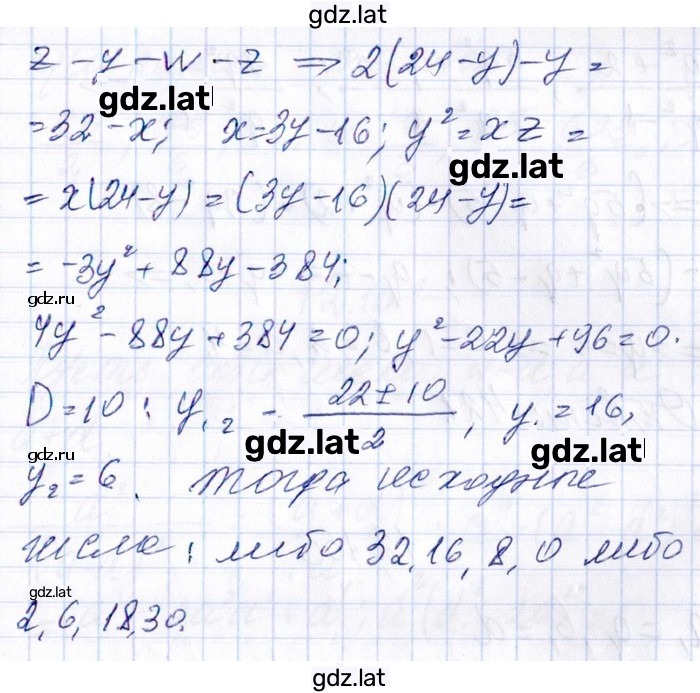 gdz.lat
z - y - w - z ⇒ 2(24-y)-y =
gdz.lat
= 32 - x; x = 3y - 16; y² = xz =
gdz.lat
= x(24-y) = (3y-16)(24-y) =
= -3y² + 88y - 384;
gdz.ru
4y² - 88y + 384 = 0; y² - 22y + 96 = 0.
D = 10; y₁,₂ = (22 ± 10)/2, y₁ = 16,
gdz.lat gdz.lat
y₂ = 6. Тогда исходные
числа: либо 32, 16, 8, 0 либо
gdz.lat
2, 6, 18, 30.
gdz.lat